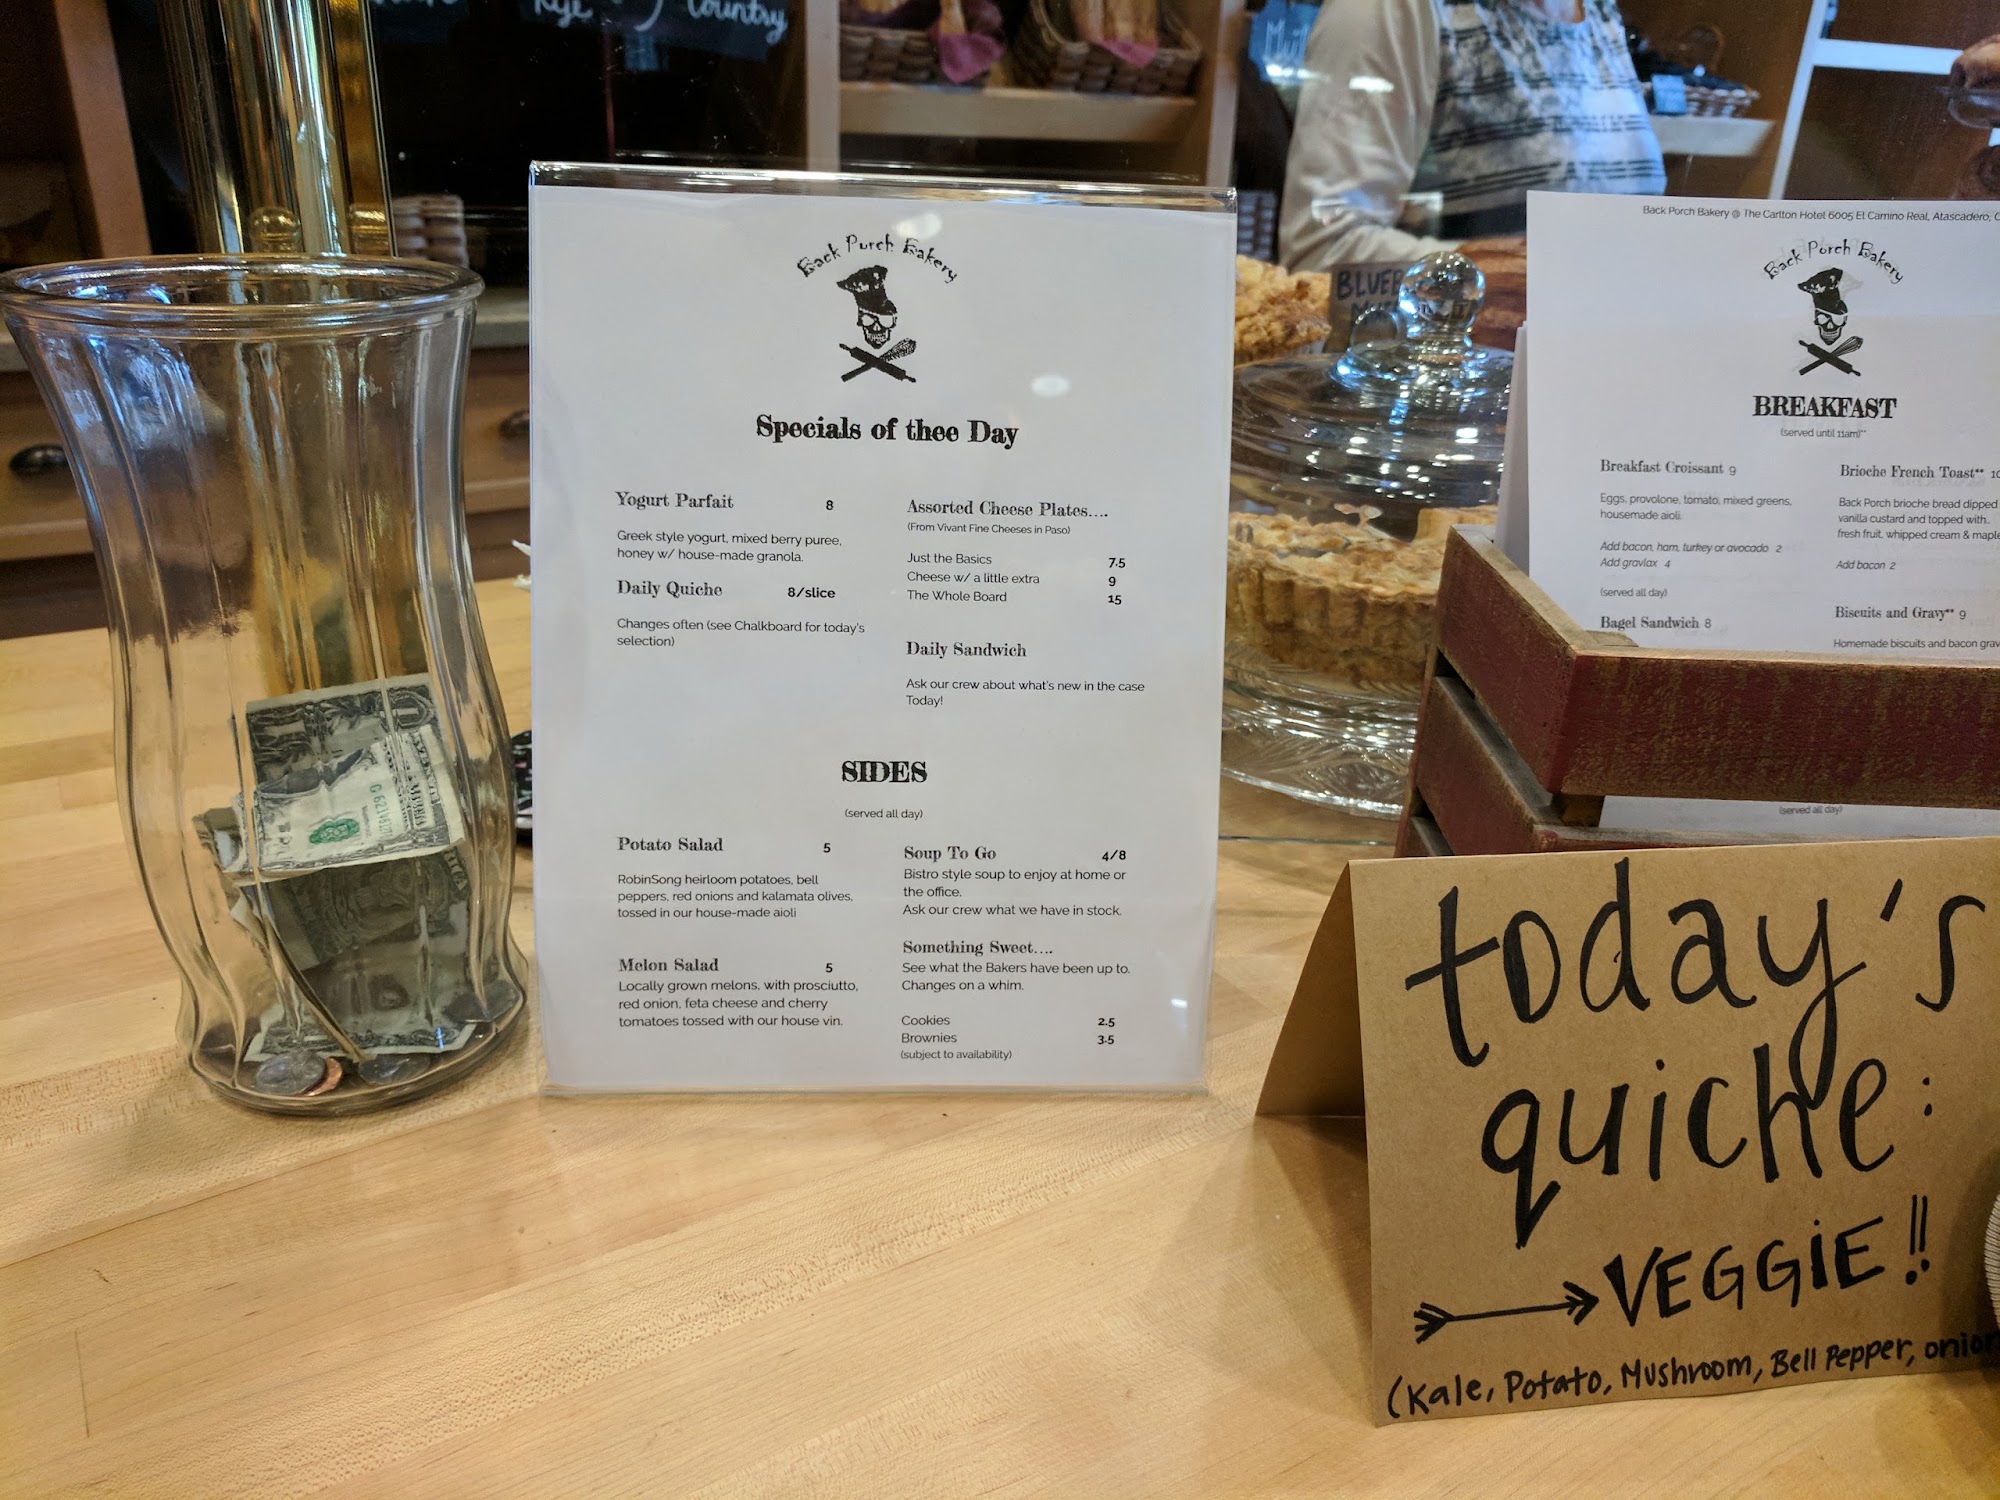 Rye
Country
Back Porch Bakery
Specials of thee Day
Yogurt Parfait 8
Greek style yogurt, mixed berry puree,
honey w/ house-made granola.
Daily Quiche 8/slice
Changes often (see Chalkboard for today's
selection)
Assorted Cheese Plates....
(From Vivant Fine Cheeses in Paso)
Just the Basics 7.5
Cheese w/ a little extra 9
The Whole Board 15
Daily Sandwich
Ask our crew about what's new in the case
Today!
SIDES
(served all day)
Potato Salad 5
RobinSong heirloom potatoes, bell
peppers, red onions and kalamata olives,
tossed in our house-made aioli
Melon Salad 5
Locally grown melons, with prosciutto,
red onion, feta cheese and cherry
tomatoes tossed with our house vin.
Soup To Go 4/8
Bistro style soup to enjoy at home or
the office.
Ask our crew what we have in stock.
Something Sweet....
See what the Bakers have been up to.
Changes on a whim.
Cookies 2.5
Brownies 3.5
(subject to availability)
Back Porch Bakery @ The Carlton Hotel 6005 El Camino Real, Atascadero,
Back Porch Bakery
BREAKFAST
(served until 11am)**
Breakfast Croissant 9
Eggs, provolone, tomato, mixed greens,
housemade aioli.
Add bacon, ham, turkey or avocado 2
Add gravlax 4
(served all day)
Bagel Sandwich 8
Brioche French Toast**
Back Porch brioche bread dipped
vanilla custard and topped with
fresh fruit, whipped cream & maple
Add bacon 2
Biscuits and Gravy** 9
Homemade biscuits and bacon grav
(served all day)
today's
quiche:
VEGGiE!!
(Kale, Potato, Mushroom, Bell Pepper, onion